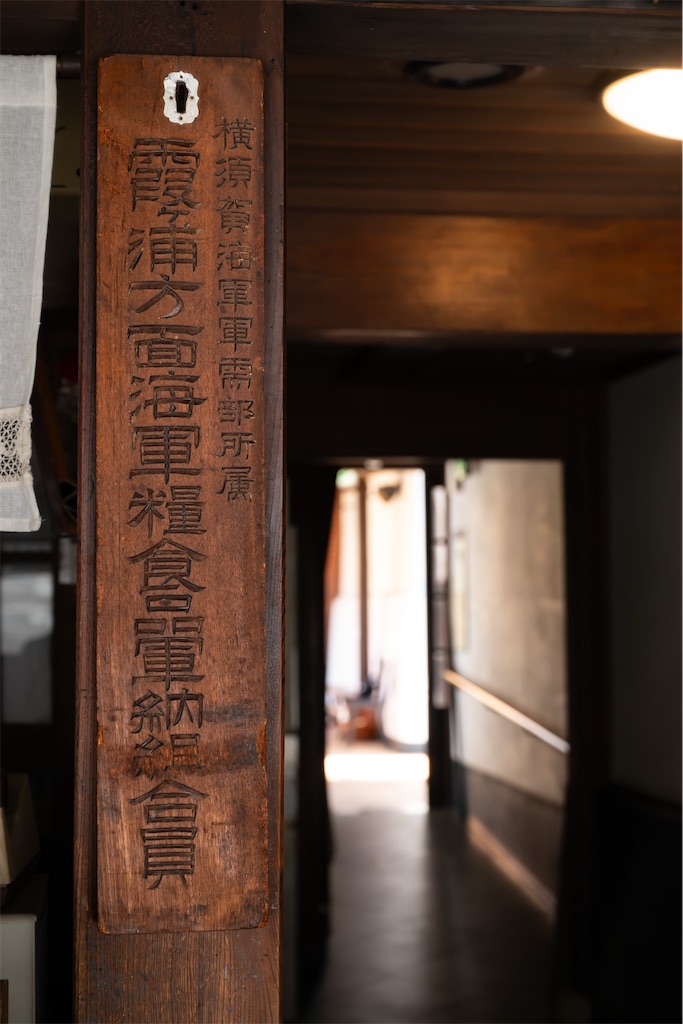 横須賀海軍軍需部所属
霞ヶ浦方面海軍糧食品軍納組合員